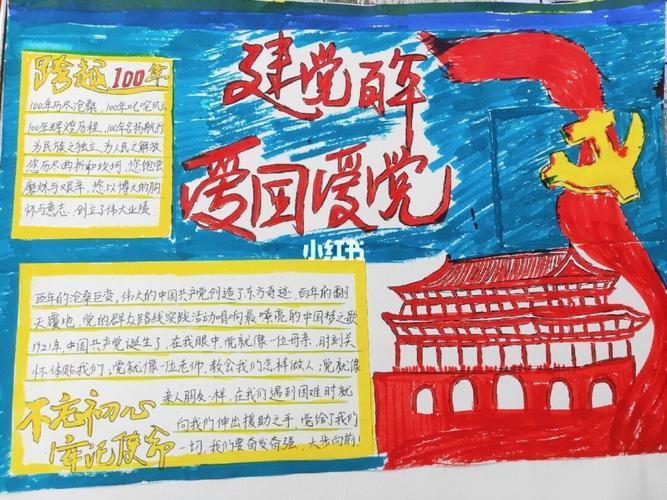 建党百年
爱国爱党
跨越100年
100年历尽沧桑,100年叱咤风云
100年辉煌历程,100年名扬航行
为民族之独立,为人民之解放
您历尽曲折和坎坷,您饱尝
磨炼与艰辛,您以博大的胸
怀与意志,创立了伟大业绩
小红书
百年的沧桑巨变,伟大的中国共产党创造了东方奇迹,百年的翻
天覆地,党的群众路线实践活动唱响最嘹亮的中国梦之歌
1921年,中国共产党诞生了,在我眼中,党就像一位母亲,时刻关
怀体贴我们;党就像一位老师,教会我们怎样做人;党就像
亲人朋友一样,在我们遇到困难时就
向我们伸出援助之手,党给了我们
一切,我们要奋发奋强,大步向前!
不忘初心
牢记使命